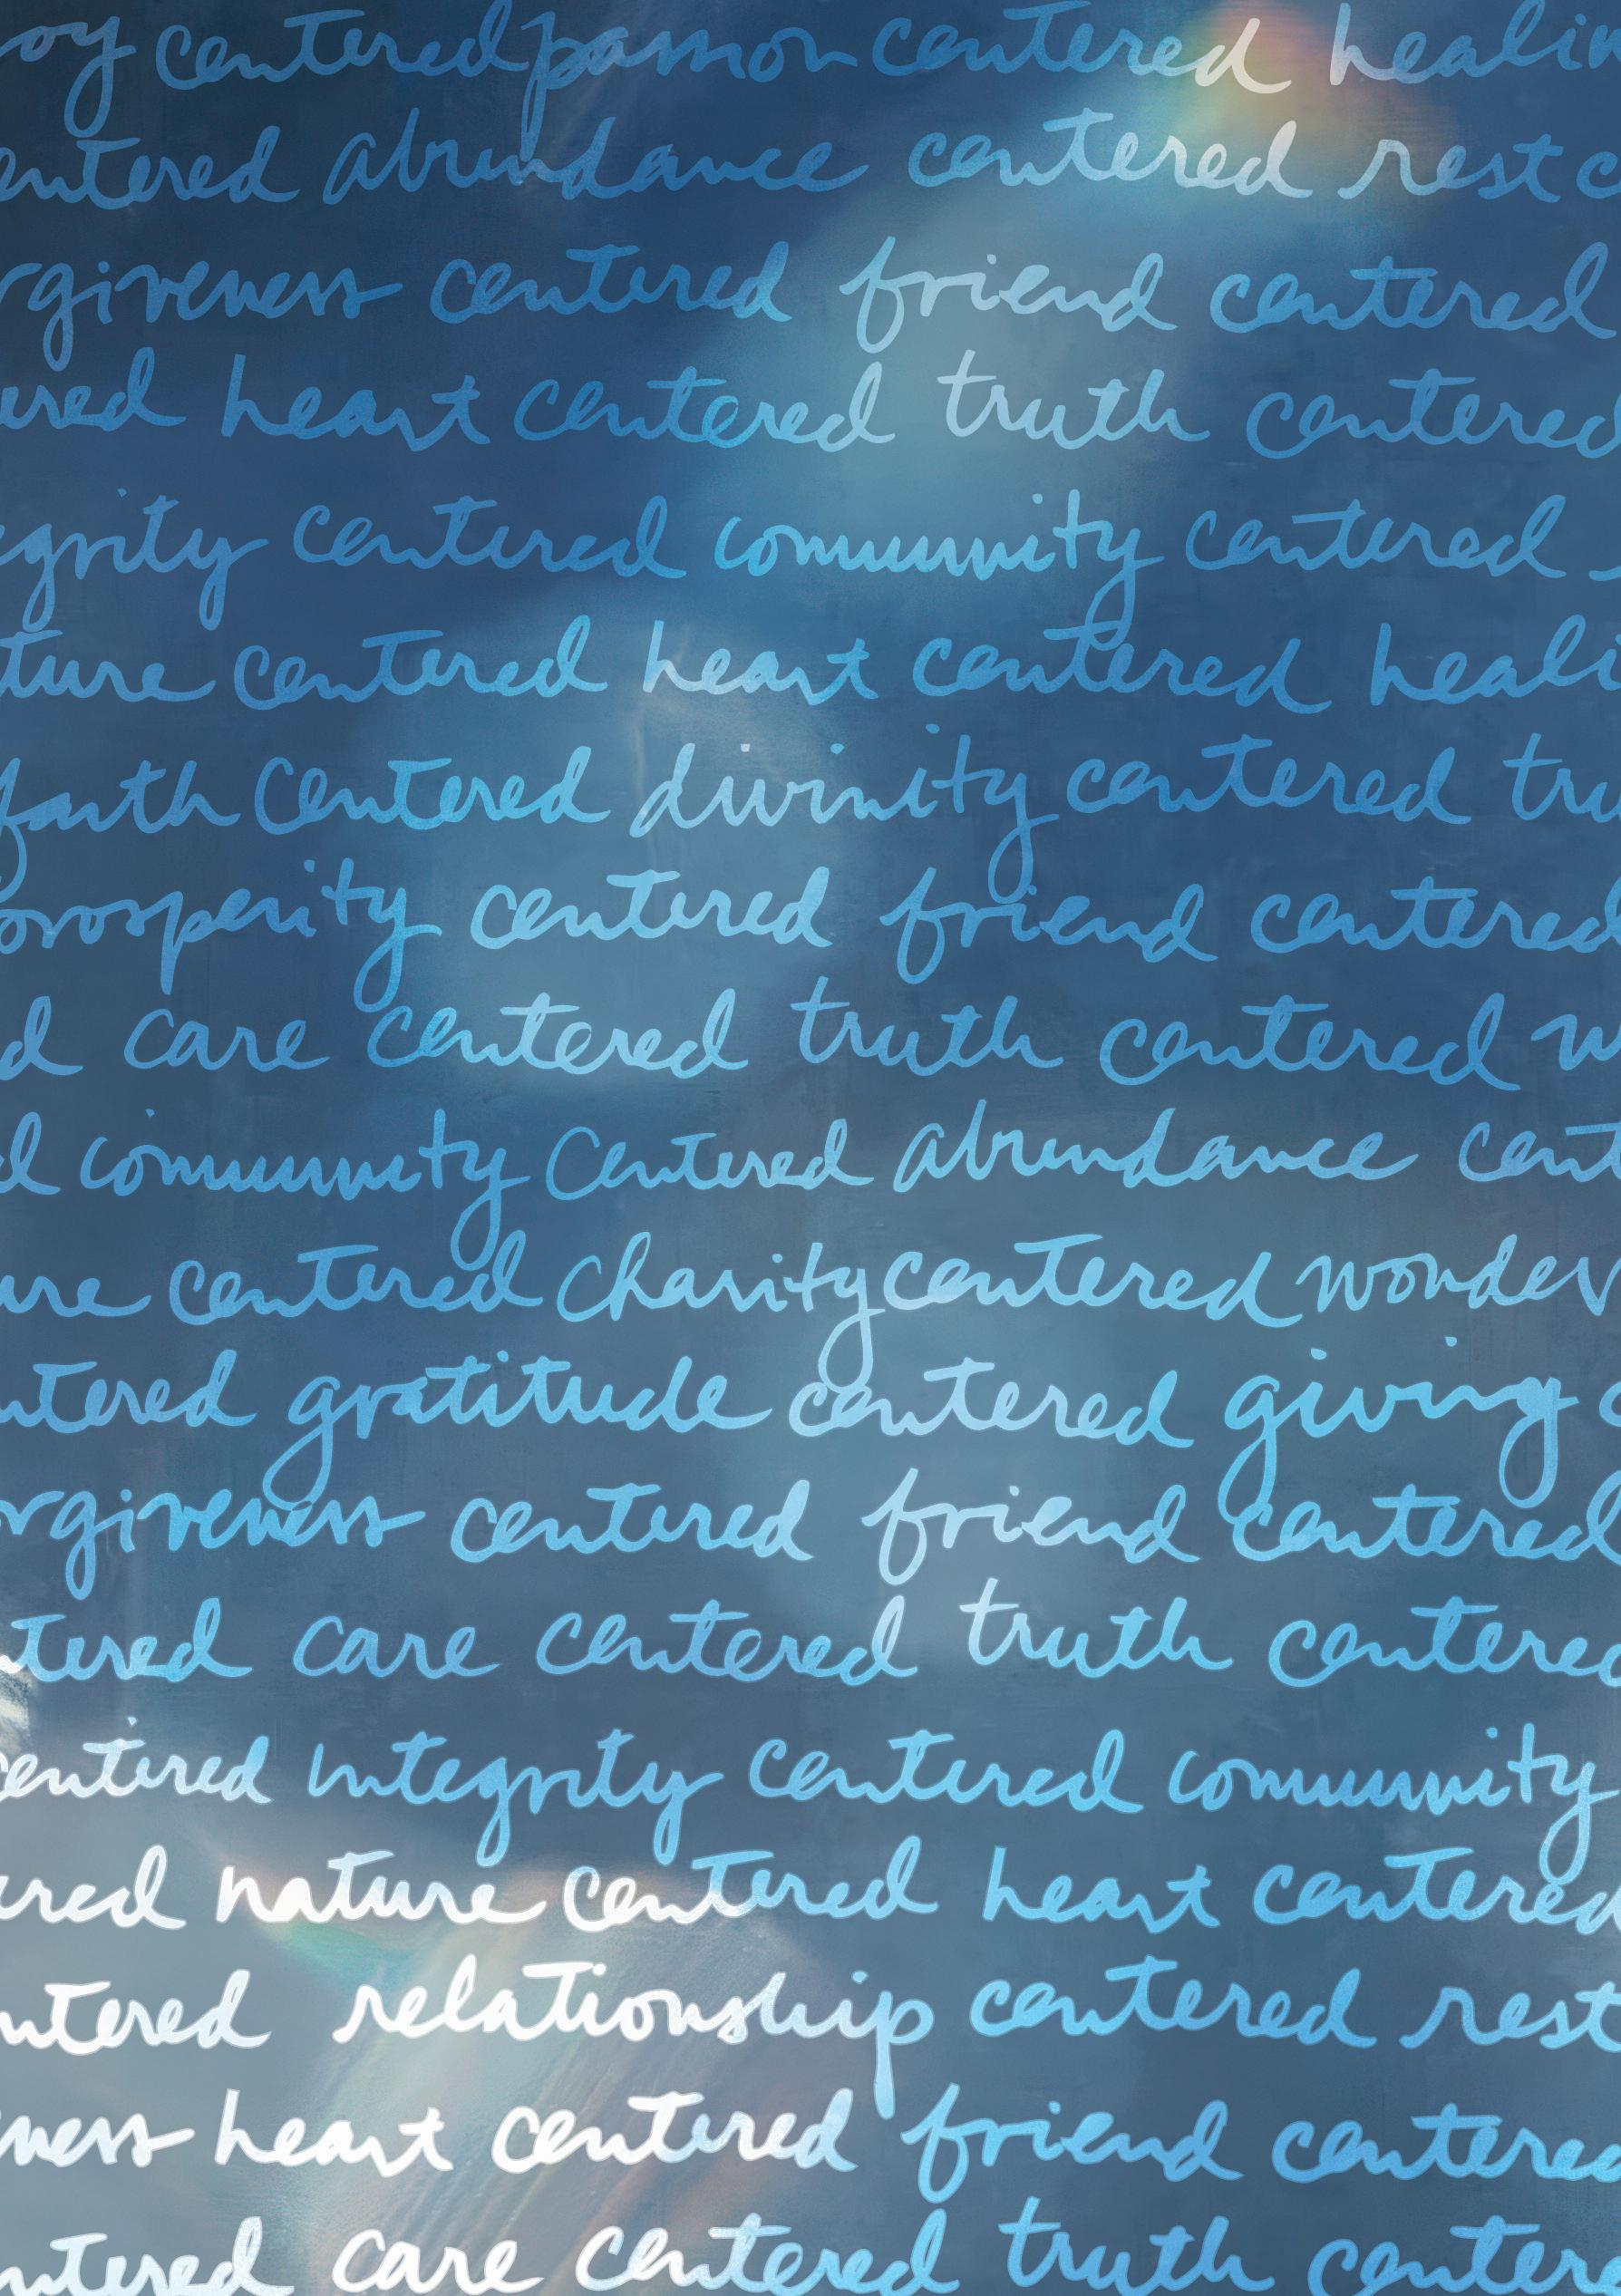 oy centered passion centered healin
entered abundance centered rest c
rgiveness centered friend centered
ered heart centered truth centered
egrity centered community centered
ture centered heart centered heali
faith centered divinity centered tru
prosperity centered friend centered
d care centered truth centered w
d community centered abundance cent
ure centered charity centered wonder
ntered gratitude centered giving c
rgiveness centered friend centered
tered care centered truth centere
centered integrity centered community
ered nature centered heart centered
ntered relationship centered rest
eness heart centered friend centered
ntered care centered truth centere